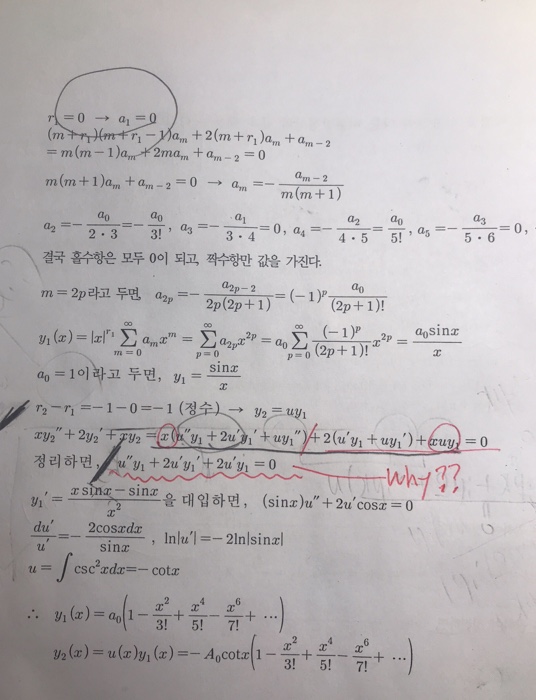 r₁=0 → a₁=0
(m+r₁)(m+r₁−1)aₘ+2(m+r₁)aₘ+aₘ₋₂
=m(m−1)aₘ+2maₘ+aₘ₋₂=0
m(m+1)aₘ+aₘ₋₂=0 → aₘ=−aₘ₋₂/m(m+1)
a₂=−a₀/2·3=−a₀/3!, a₃=−a₁/3·4=0, a₄=−a₂/4·5=a₀/5!, a₅=−a₃/5·6=0,
결국 홀수항은 모두 0이 되고, 짝수항만 값을 가진다.
m=2p라고 두면, a₂ₚ=−a₂ₚ₋₂/2p(2p+1)=(−1)ᵖ a₀/(2p+1)!
y₁(x)=|x|^r₁ ∑_{m=0}^{∞} aₘxᵐ=∑_{p=0}^{∞} a₂ₚx²ᵖ=a₀∑_{p=0}^{∞} (−1)ᵖ/(2p+1)! x²ᵖ=a₀sinx/x
a₀=1이라고 두면, y₁=sinx/x
r₂−r₁=−1−0=−1 (정수) → y₂=uy₁
xy₂″+2y₂′+xy₂=x(u″y₁+2u′y₁′+uy₁″)+2(u′y₁+uy₁′)+xuy₁=0
정리하면, u″y₁+2u′y₁′+2u′y₁=0
why??
y₁′=xsinx−sinx/x² 을 대입하면, (sinx)u″+2u′cosx=0
du′/u′=−2cosxdx/sinx, ln|u′|=−2ln|sinx|
u=∫csc²xdx=−cotx
∴ y₁(x)=a₀(1−x²/3!+x⁴/5!−x⁶/7!+⋯)
y₂(x)=u(x)y₁(x)=−A₀cotx(1−x²/3!+x⁴/5!−x⁶/7!+⋯)